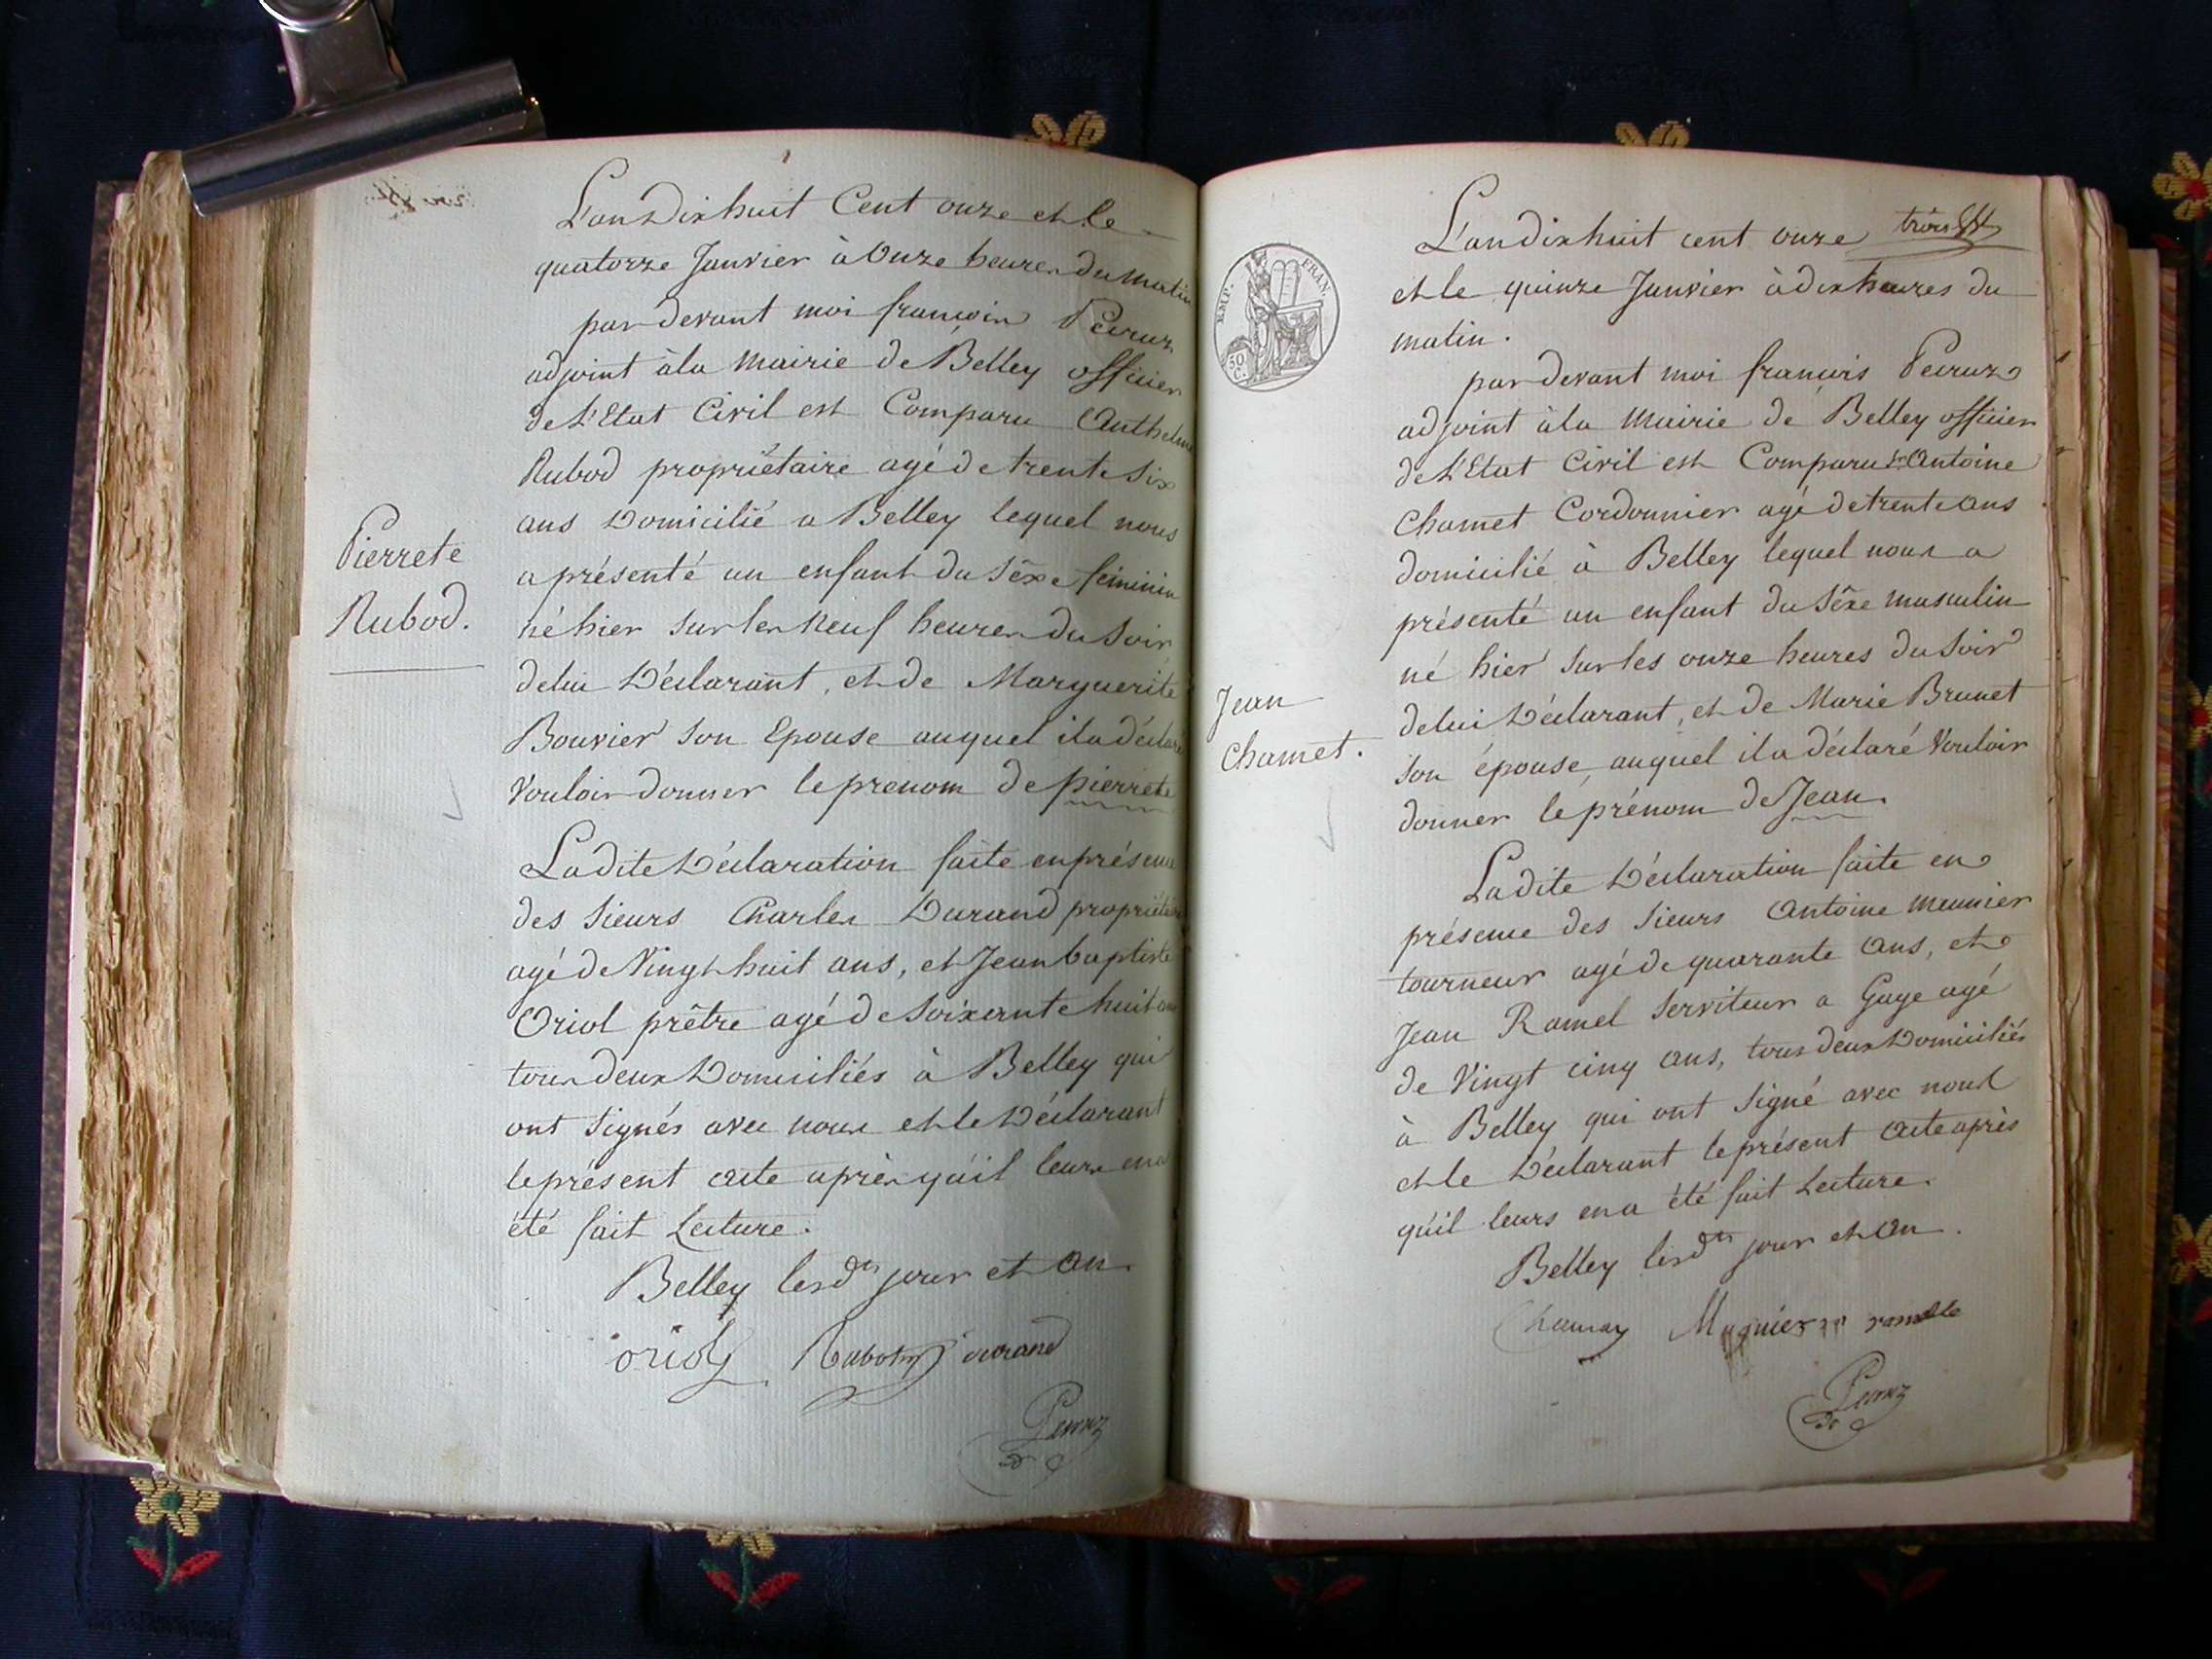 L'an Dix huit Cent onze et le
quatorze Janvier à Onze heures du matin
par devant moi françois Peiruz
adjoint à la Mairie de Belley officier
de L'Etat Civil est Comparu Anthelme
Rubod propriétaire agé de trente Six
ans Domicilié a Belley lequel nous
a présenté un enfant du Sêxe féminin
né hier Sur les Neuf heures du Soir
de lui Déclarant, et de Marguerite
Bouvier Son Epouse auquel il a déclaré
Vouloir donner le prenom de pierrete
Pierrete
Rubod.
La dite Déclaration faite en présence
des Sieurs Charles Durand propriétaire
agé de Vingt huit ans, et Jean baptiste
Oriol prêtre agé de Soixante huit ans
tous deux Domiciliés à Belley qui
ont Signés avec nous et le Déclarant
le présent acte après qu'il leurs en a
été fait Lecture.
Belley lesd.ts jour et an.
oriol Rubod durand
Peiruz
trois
L'an dix huit cent onze
et le quinze Janvier à dix heures du
matin.
par devant moi françois Peiruz
adjoint à la Mairie de Belley officier
de L'Etat Civil est Comparu Sr Antoine
Chamet Cordonnier agé de trente ans
domicilié à Belley lequel nous a
présenté un enfant du Sêxe masculin
né hier Sur les onze heures du Soir
de lui Déclarant, et de Marie Brunet
Son épouse, auquel il a déclaré Vouloir
donner le prénom de Jean.
Jean
Chamet.
La dite Déclaration faite en
présence des Sieurs Antoine meunier
tourneur agé de quarante ans, et
Jean Ramel Serviteur a Gage agé
de Vingt cinq ans, tous deux Domiciliés
à Belley qui ont Signé avec nous
et le Déclarant le présent acte après
qu'il leurs en a été fait Lecture.
Belley lesd.ts jour et an.
Peiruz
EMP. FRAN.
50
C.